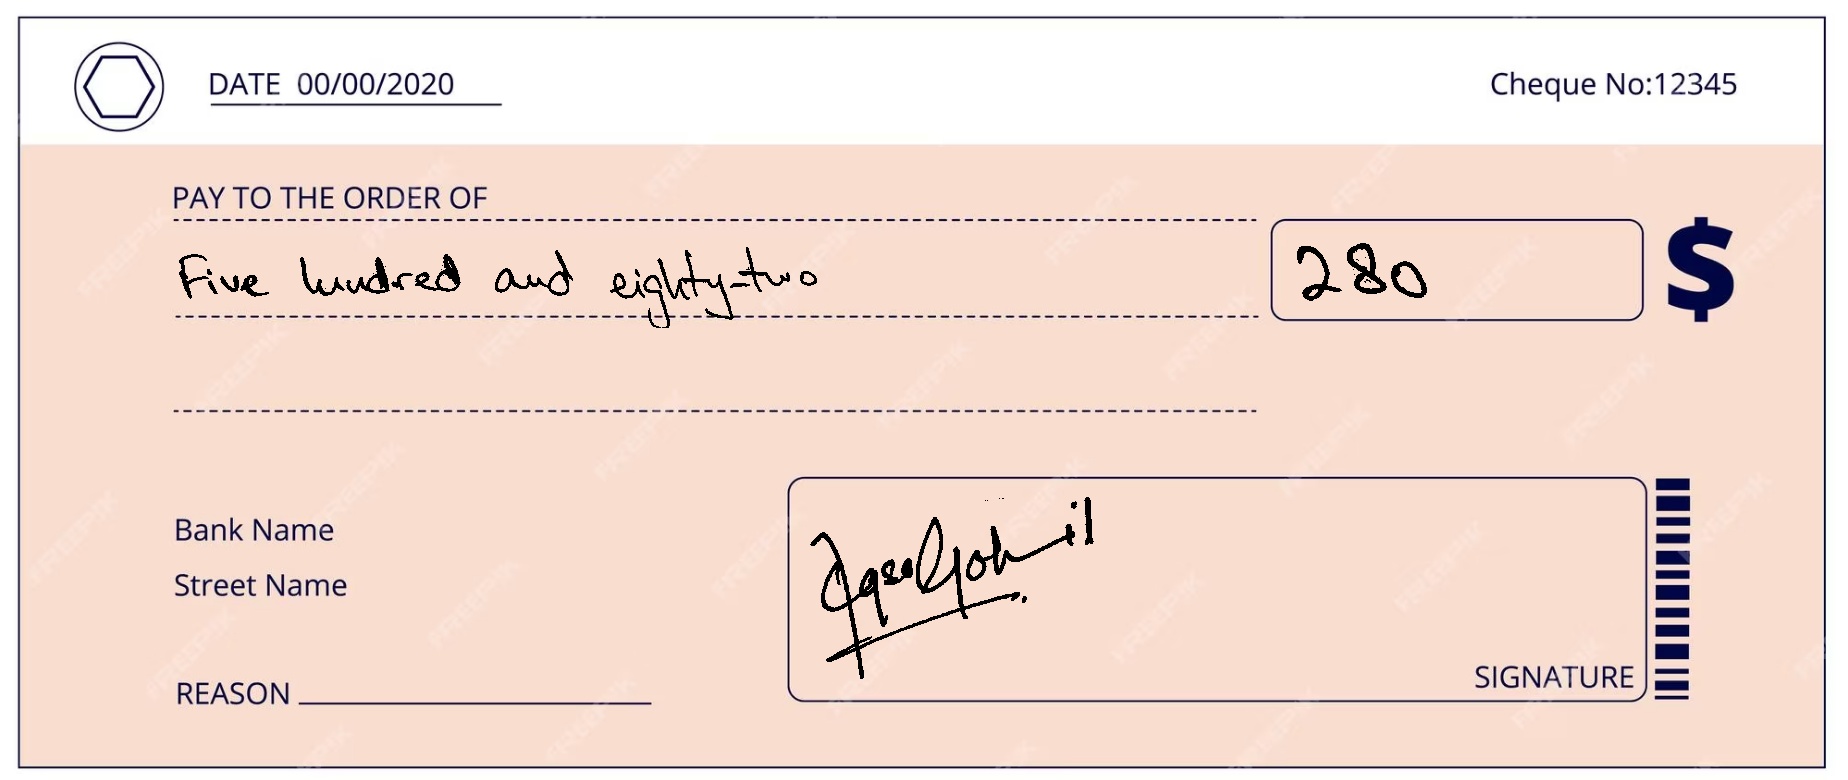 DATE 00/00/2020
Cheque No:12345
PAY TO THE ORDER OF
Five hundred and eighty-two
280
$
Bank Name
Street Name
REASON
SIGNATURE